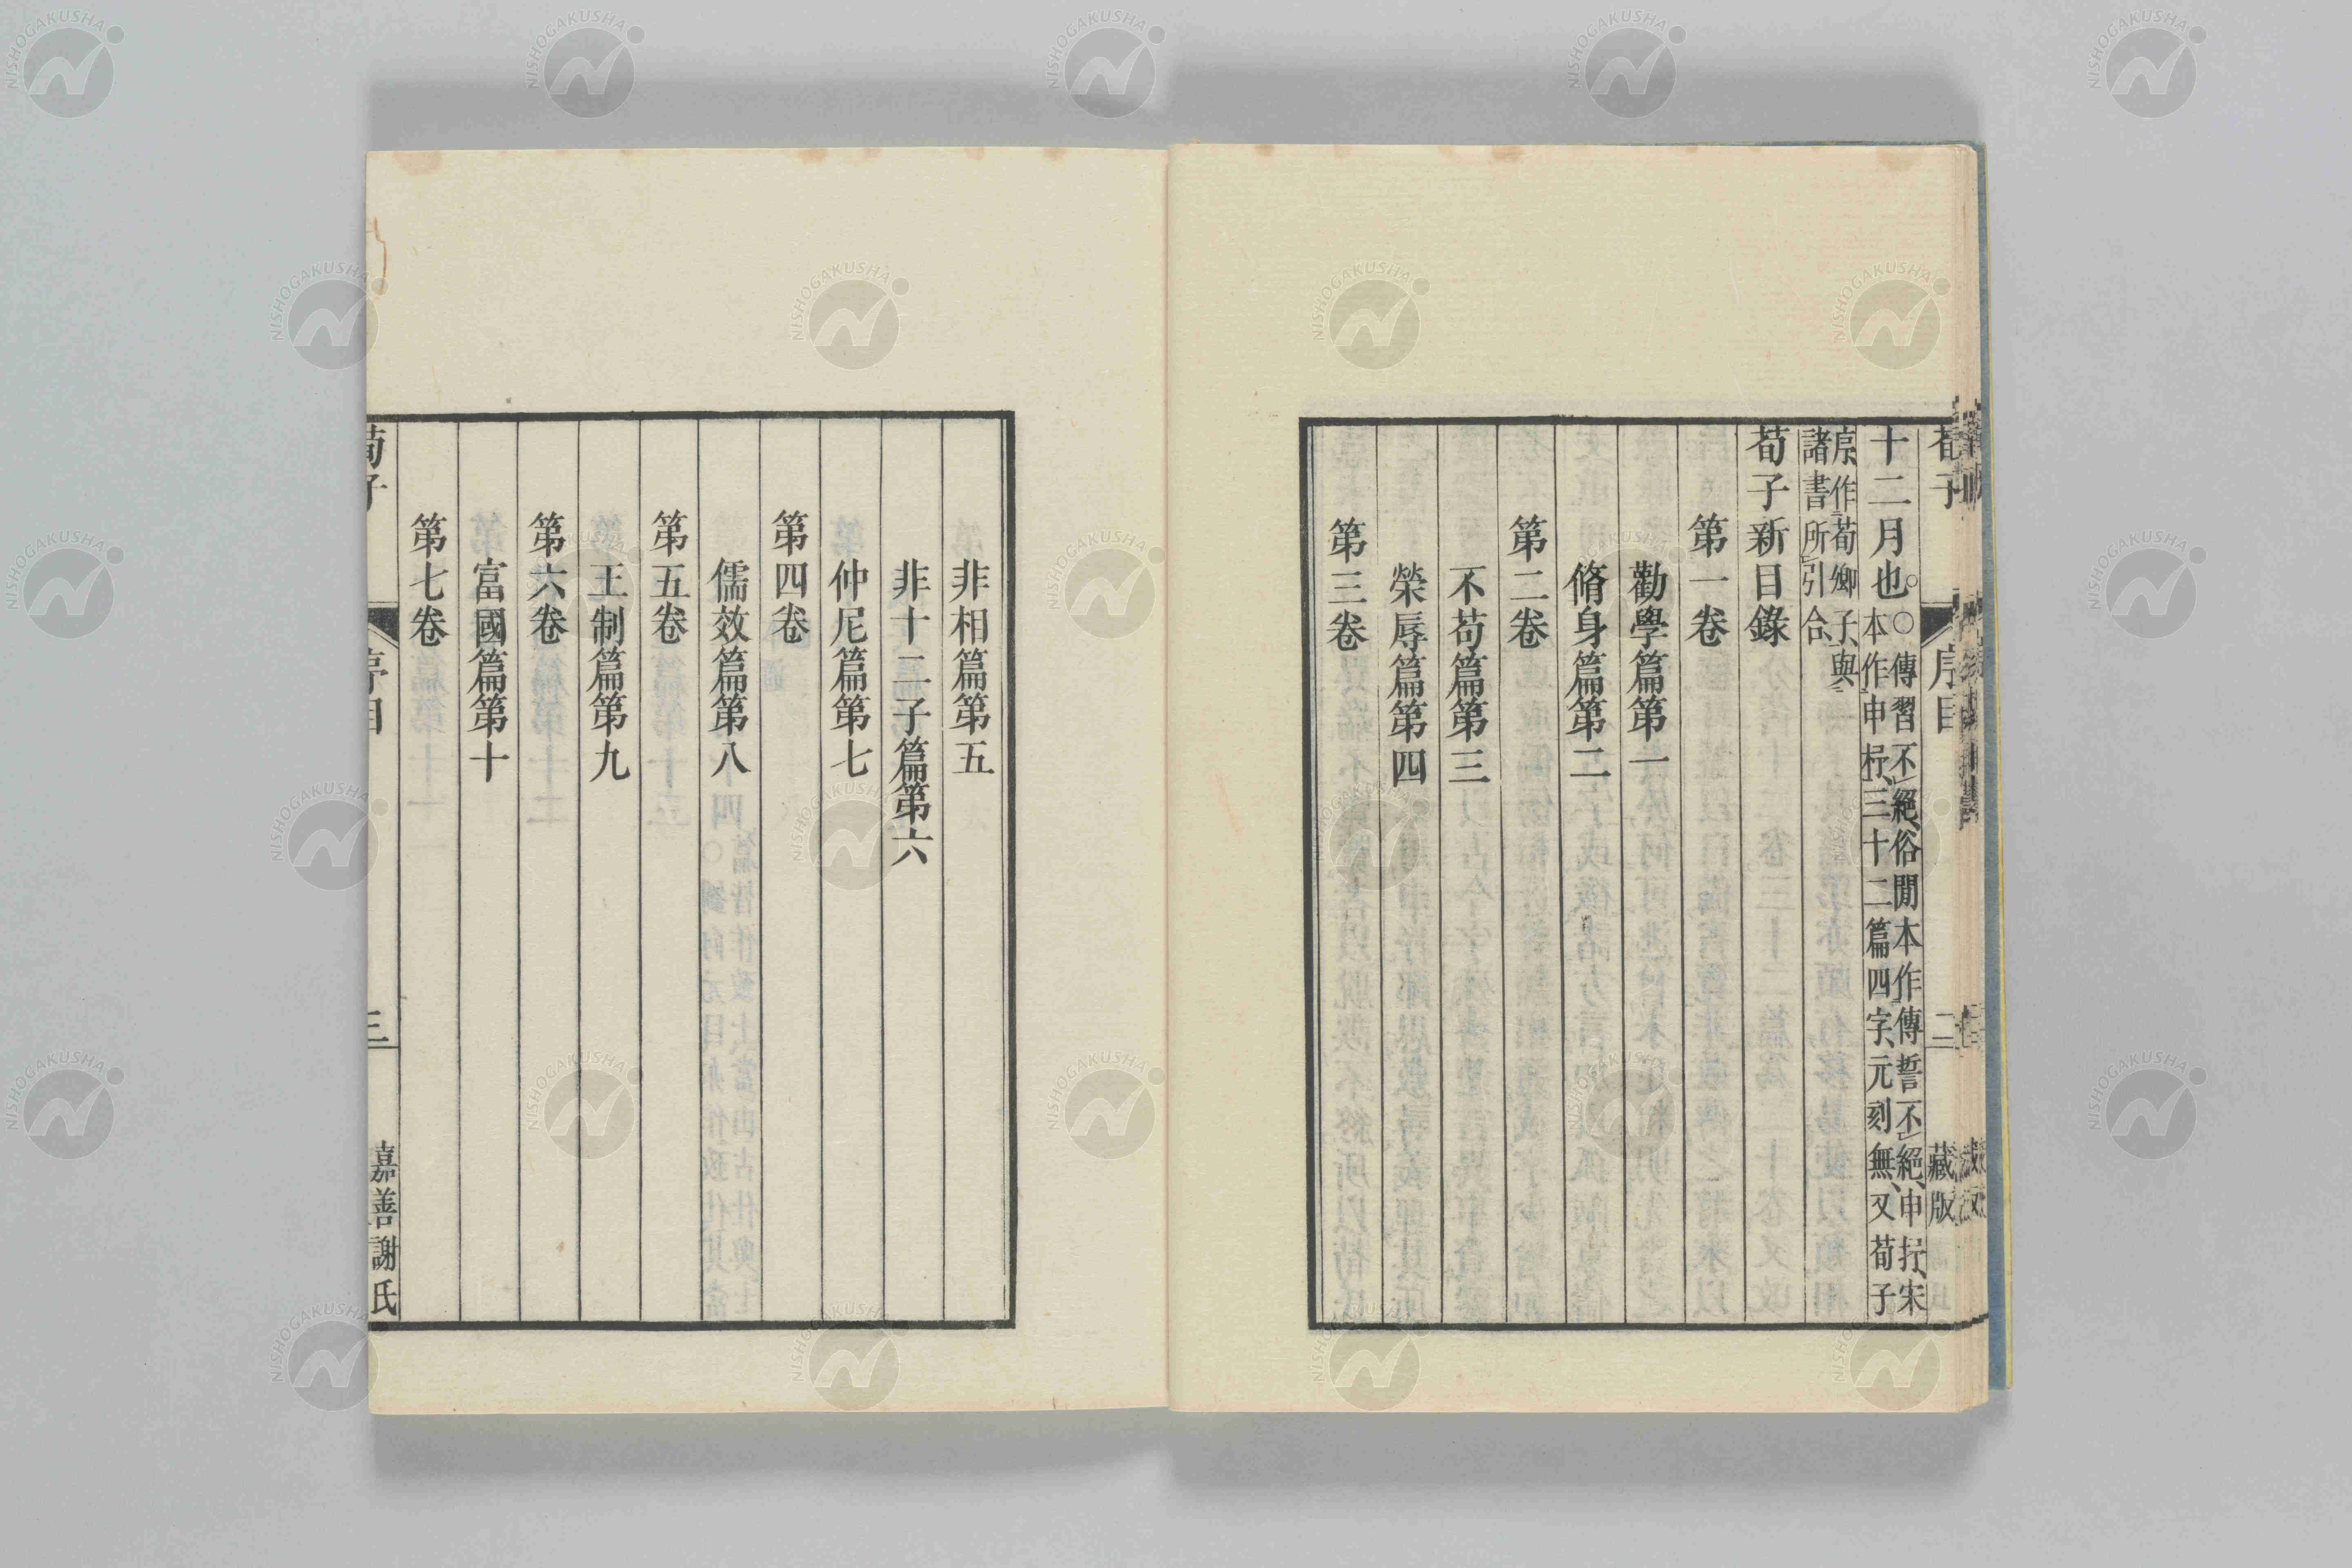 荀子 序目 二 藏版
十二月也○傳習不絕俗閒本作傳誓不絕申抒宋
本作申杼三十二篇四字元刻無又荀子
序作荀卿子與
諸書所引合
荀子新目錄
第一卷
勸學篇第一
脩身篇第二
第二卷
不苟篇第三
榮辱篇第四
第三卷
非相篇第五
非十二子篇第六
仲尼篇第七
第四卷
儒效篇第八
第五卷
王制篇第九
第六卷
富國篇第十
第七卷
荀子 序目 三 嘉善謝氏
NISHOGAKUSHA